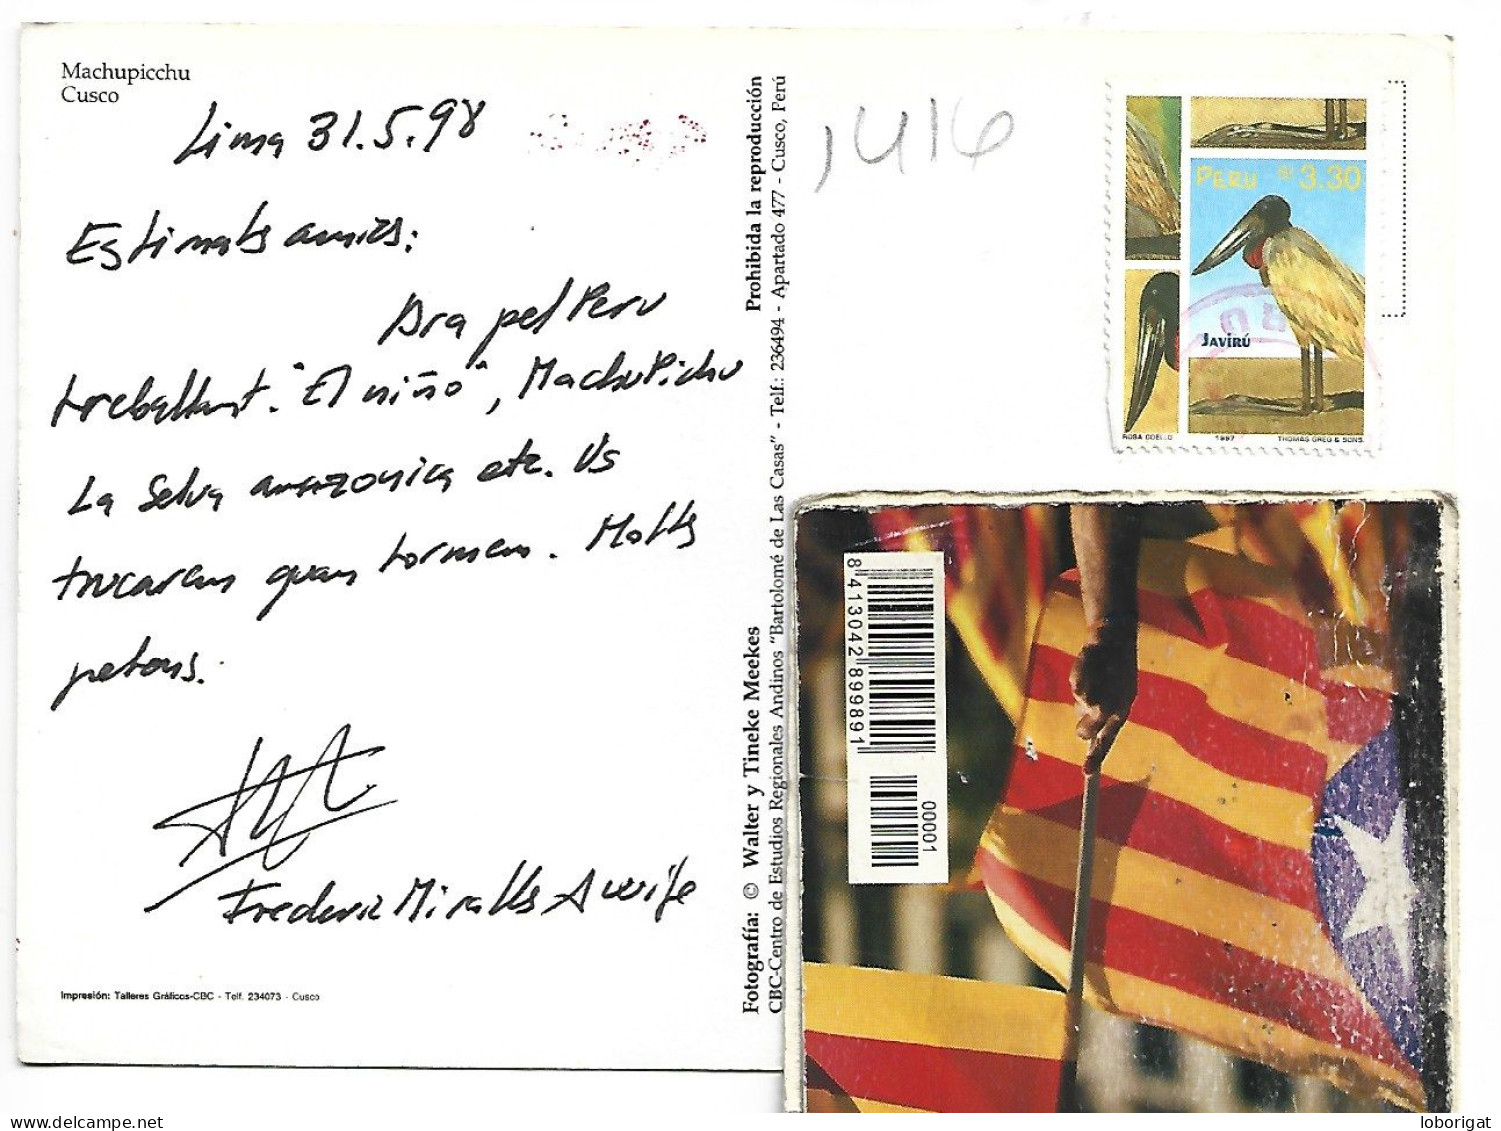 Machupicchu
Cusco
Lima 31.5.98
Estimats amics:
Ara pel Peru
treballant. "El niño", MachuPichu
La Selva amazonica etc. Us
trucarem quan tornem. Molts
petons.
Frederic Miralles
Impresión: Talleres Gráficos-CBC - Telf. 234073 - Cusco
Fotografía: © Walter y Tineke Meekes Prohibida la reproducción
CBC-Centro de Estudios Regionales Andinos "Bartolomé de Las Casas" - Telf.: 236494 - Apartado 477 - Cusco, Perú
1416
PERU S/. 3.30
JAVIRÚ
ROSA COELLO 1997 THOMAS GREG & SONS.
8413042899891
00001
www.delcampe.net
loborigat